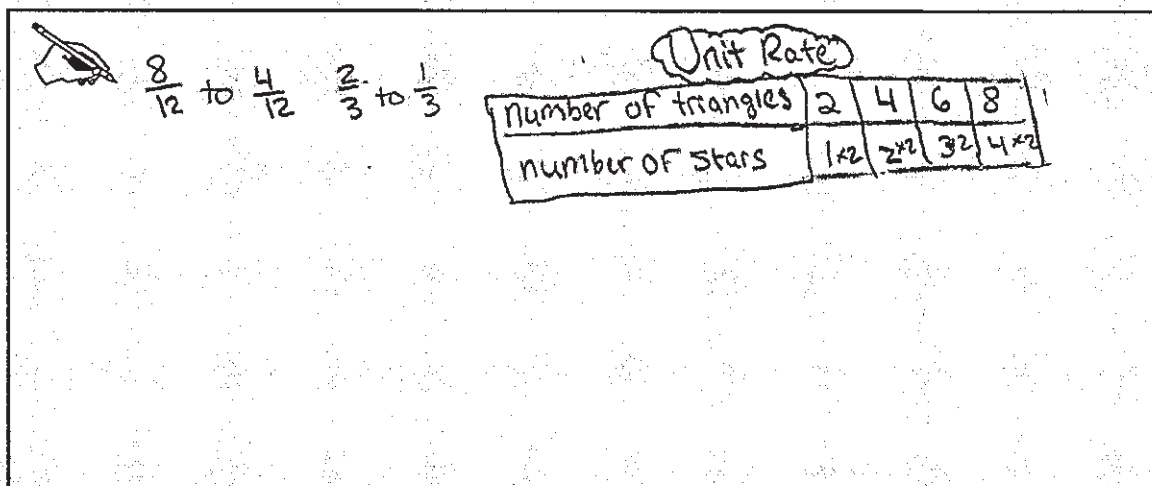 8/12 to 4/12 2/3 to 1/3
Unit Rate
number of triangles 2 4 6 8
number of stars 1×2 2×2 3×2 4×2